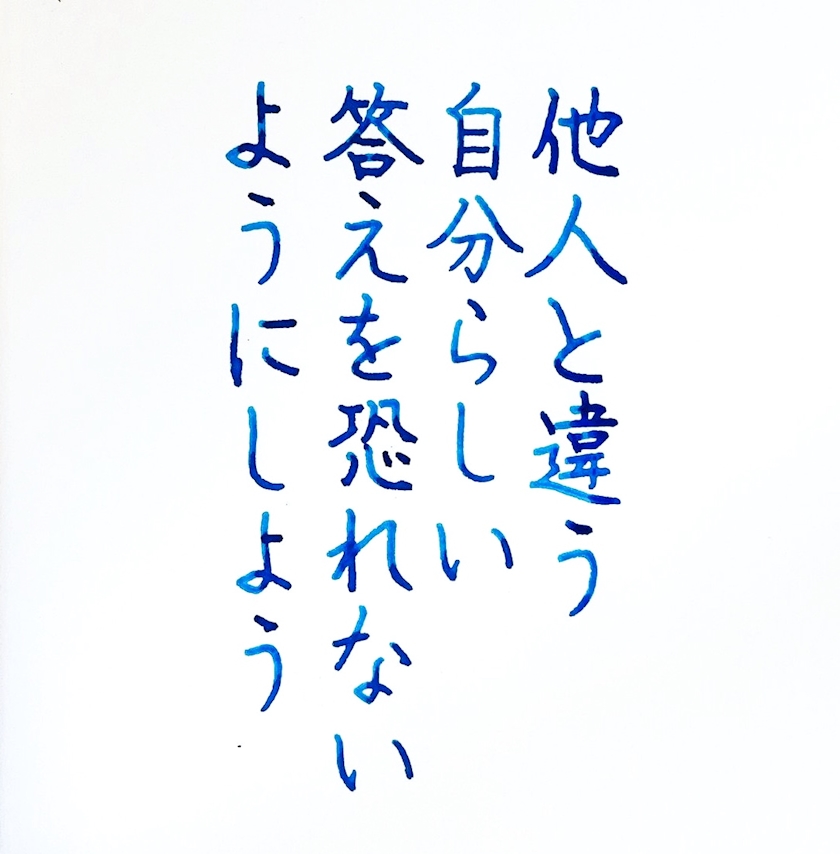 他人と違う
自分らしい
答えを恐れない
ようにしよう